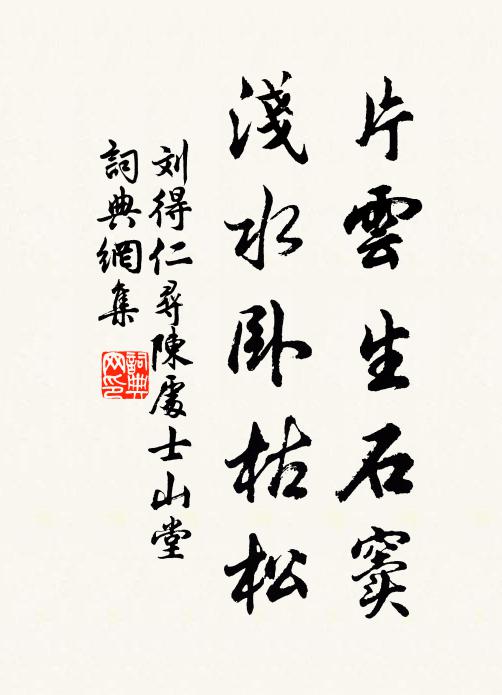 片雲生石竇
淺水卧枯松
刘得仁尋陳處士山堂
詞典網集
詞典网印